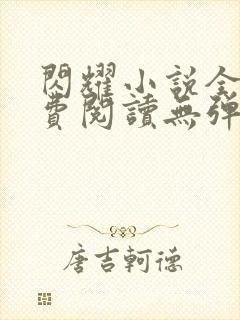 閃耀小說全
費閱讀無彈
唐吉軻德